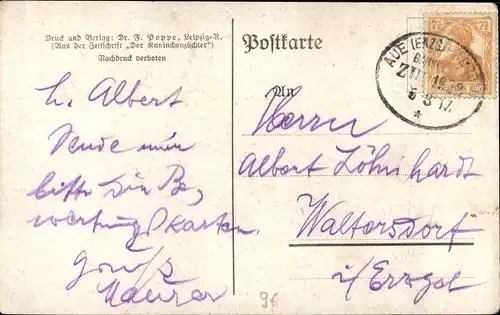 Druck und Verlag: Dr. F. Poppe, Leipzig-R.
(Aus der Zeitschrift „Der Kaninchenzüchter“
Nachdruck verboten
Postkarte
AUE (ERZGEB.)
ZUG
5 3 17
7½
L. Albert
Sende mir
bitte die Be-
wertungskarten.
Gruß
An
Herrn
Albert Löhnhardt
Waltersdorf
i/Erzgeb
96